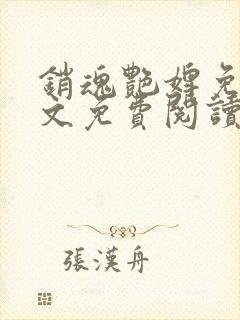 銷魂艷婢免
文免費閱讀
張漢舟